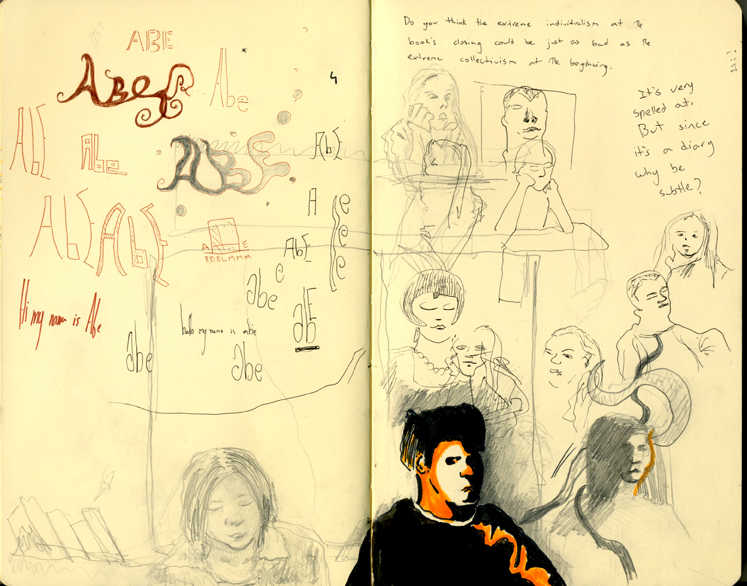 ABE
ABE
Abe
AbE
Abe
ABE
AbE
AbE
AbE
A
ABE
EDELMAN
AbE
abe
abE
Hi my name is Abe
hello my name is abe
abe
abe
Do you think the extreme individualism at the
book's closing could be just as bad as the
extreme collectivism at the beginning.
It's very
spelled out.
But since
it's a diary
why be
subtle?